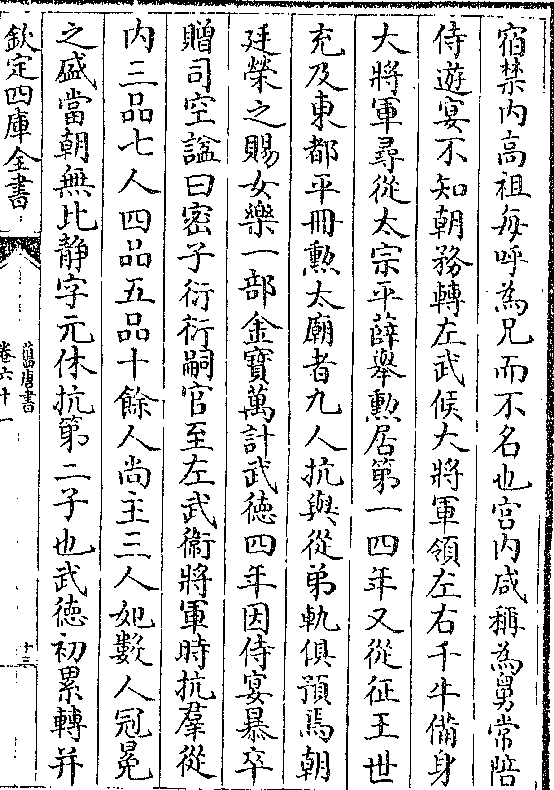 宿禁内高祖每呼為兄而不名也宫内咸稱為舅常陪
侍遊宴不知朝務轉左武候大將軍領左右千牛備身
大將軍尋從太宗平薛舉勲居第一四年又從征王世
充及東都平冊勲太廟者九人抗與從弟軌俱預焉朝
廷榮之賜女樂一部金寶萬計武徳四年因侍宴暴卒
贈司空諡曰密子衍衍嗣官至左武衛將軍時抗羣從
内三品七人四品五品十餘人尚主三人妃數人冠冕
之盛當朝無比静字元休抗第二子也武徳初累轉并
欽定四庫全書
舊唐書
卷六十一
十三